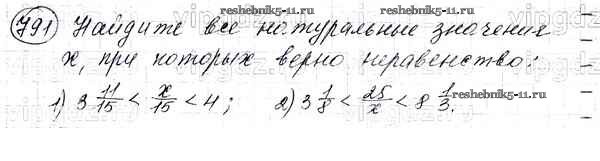 reshebnik5-11.ru
791) Найдите все натуральные значения
x, при которых верно неравенство:
reshebnik5-11.ru
1) 3 11/15 < x/15 < 4; 2) 3 1/8 < 25/x < 8 1/3.
reshebnik5-11.ru